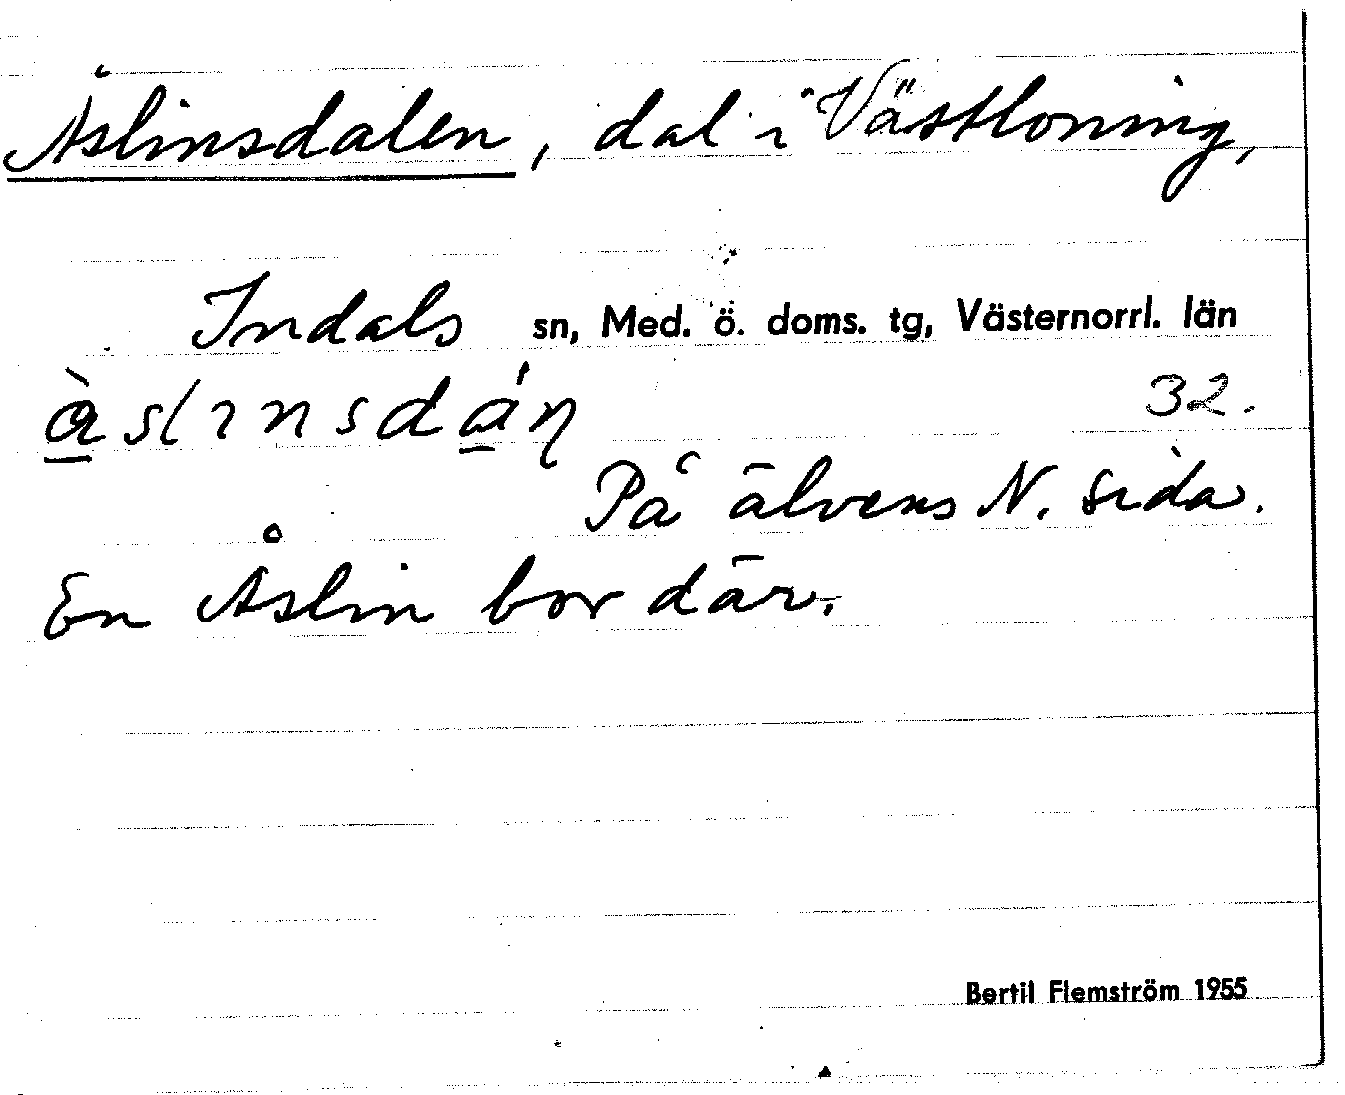 Åslinsdalen, dal i Västloning,
Indals sn, Med. ö. doms. tg, Västernorrl. län
åslinsdáṇ 32.
På älvens N. sida.
En Åslin bor där.
Bertil Flemström 1955